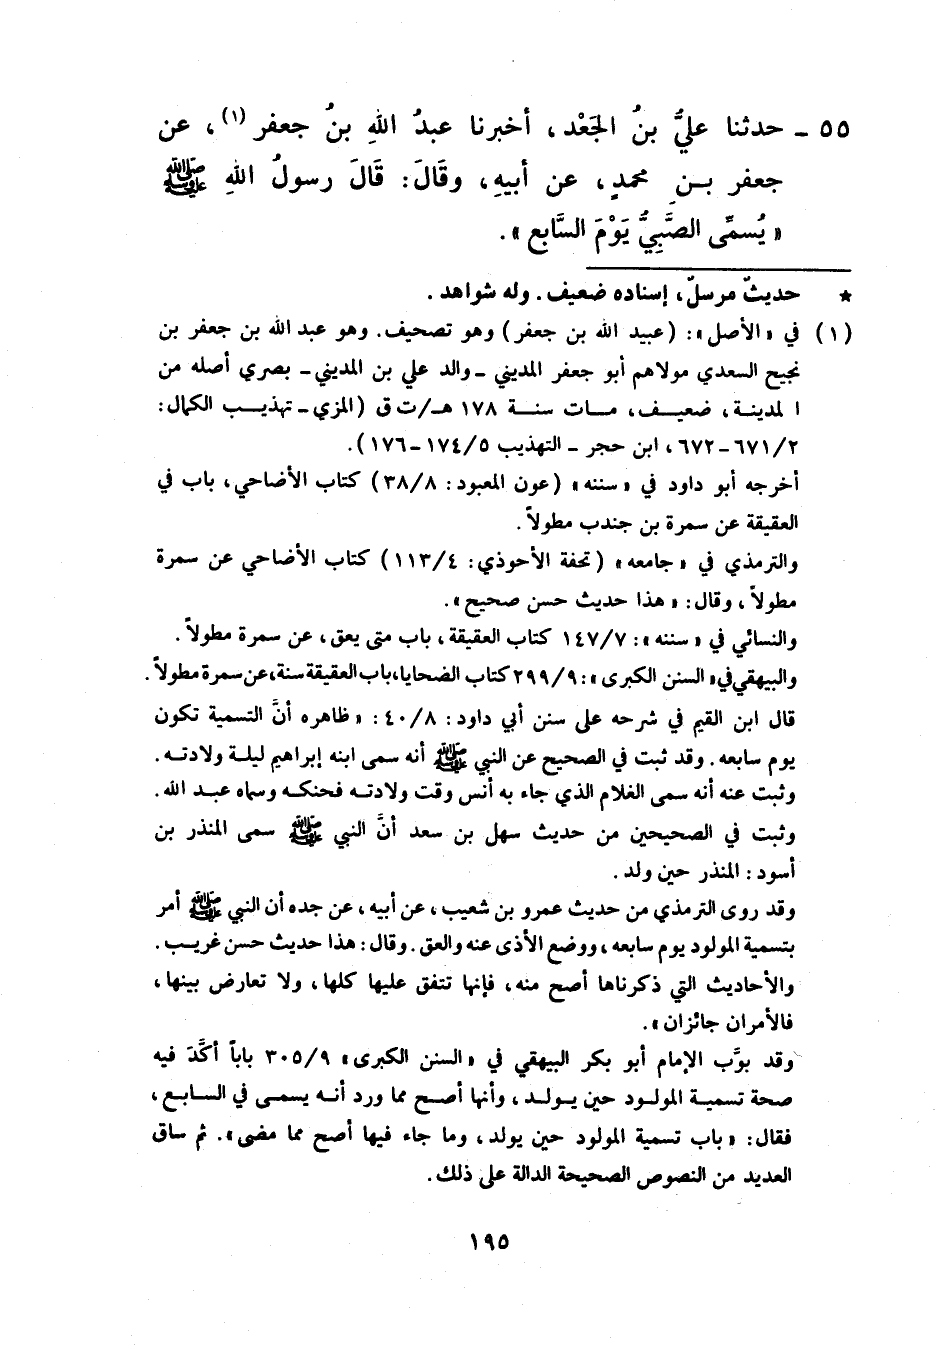 ٥٥ ـ حدثنا عليُّ بنُ الجَعْد، أخبرنا عبدُ اللهِ بنُ جعفر (١)، عن
جعفر بـنِ محمدٍ، عن أبيهِ، وقَالَ: قَالَ رسولُ اللهِ ﷺ
« يُسمِّى الصَّبِيُّ يَوْمَ السَّابع ».
★ حديثٌ مرسلٌ، إسناده ضعيف. وله شواهد.
(١) في « الأصل »: (عبيد الله بن جعفر) وهو تصحيف. وهو عبد الله بن جعفر بن
نجيح السعدي مولاهم أبو جعفر المديني ـ والد علي بن المديني ـ بصري أصله من
المدينـة، ضعيـف، مـات سنـة ١٧٨ هـ/ت ق (المزي ـ تهذيـب الكمال:
٦٧١/٢ ـ ٦٧٢، ابن حجر ـ التهذيب ١٧٤/٥ ـ ١٧٦).
أخرجه أبو داود في « سننه » (عون المعبود: ٣٨/٨) كتاب الأضاحي، باب في
العقيقة عن سمرة بن جندب مطولاً.
والترمذي في « جامعه » (تحفة الأحوذي: ١١٣/٤) كتاب الأضاحي عن سمرة
مطولاً، وقال: « هذا حديث حسن صحيح ».
والنسائي في « سننه »: ١٤٧/٧ كتاب العقيقة، باب متى يعق، عن سمرة مطولاً.
والبيهقي في « السنن الكبرى »: ٢٩٩/٩ كتاب الضحايا، باب العقيقة سنة، عن سمرة مطولاً.
قال ابن القيم في شرحه على سنن أبي داود: ٤٠/٨: « ظاهره أنَّ التسمية تكون
يوم سابعه. وقد ثبت في الصحيح عن النبي ﷺ أنه سمى ابنه إبراهيم ليلـة ولادتـه.
وثبت عنه أنه سمى الغلام الذي جاء به أنس وقت ولادتـه فحنكـه وسماه عبـد الله.
وثبت في الصحيحين من حديث سهل بن سعد أنَّ النبي ﷺ سمى المنذر بن
أسود: المنذر حين ولد.
وقد روى الترمذي من حديث عمرو بن شعيب، عن أبيه، عن جده أن النبي ﷺ أمر
بتسمية المولود يوم سابعه، ووضع الأذى عنه والعق. وقال: هذا حديث حسن غريـب.
والأحاديث التي ذكرناها أصح منه، فإنها تتفق عليها كلها، ولا تعارض بينها،
فالأمران جائزان ».
وقد بوَّب الإمام أبو بكر البيهقي في « السنن الكبرى » ٣٠٥/٩ باباً أكَّدَ فيه
صحة تسميـة المولـود حين يـولـد، وأنها أصـح مما ورد أنـه يسمـى في السـابـع،
فقال: « باب تسمية المولود حين يولد، وما جاء فيها أصح مما مضى ». ثم ساق
العديد من النصوص الصحيحة الدالة على ذلك.
١٩٥